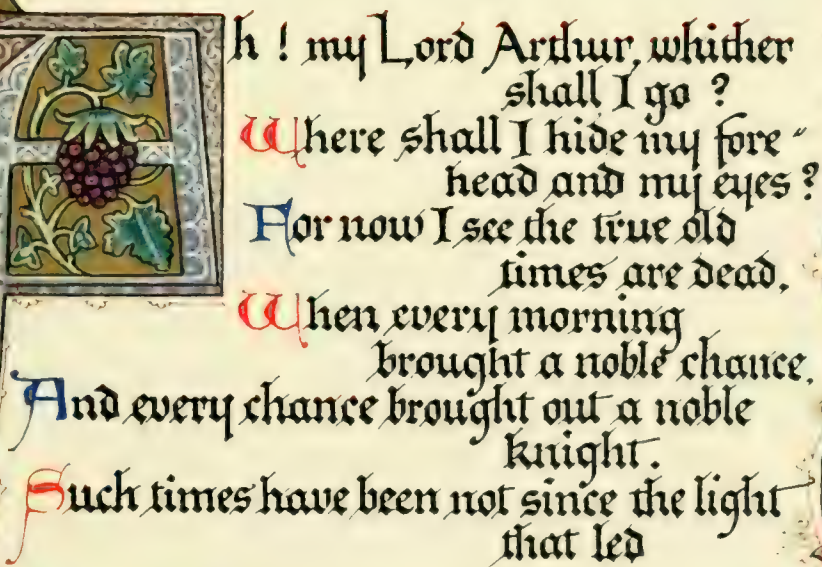 Ah! my Lord Arthur, whither
shall I go?
Where shall I hide my fore-
head and my eyes?
For now I see the true old
times are dead,
When every morning
brought a noble chance,
And every chance brought out a noble
knight.
Such times have been not since the light
that led